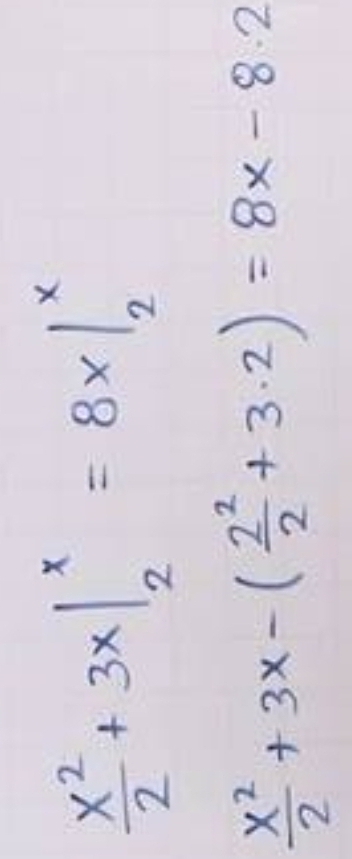 x²/2 + 3x |₂ˣ = 8x |₂ˣ
x²/2 + 3x - (2²/2 + 3·2) = 8x - 8·2